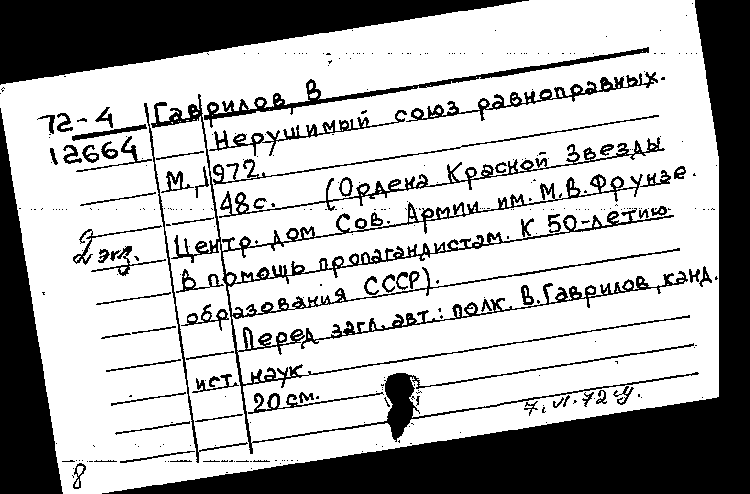 72-4 Гаврилов, В
12664 Нерушимый союз равноправных.
М., 1972.
48 с. (Ордена Красной Звезды
Центр. дом Сов. Армии им. М.В. Фрунзе.
2 экз. В помощь пропагандистам. К 50-летию
образования СССР).
Перед загл. авт.: полк. В. Гаврилов, канд.
ист. наук.
20 см.
8